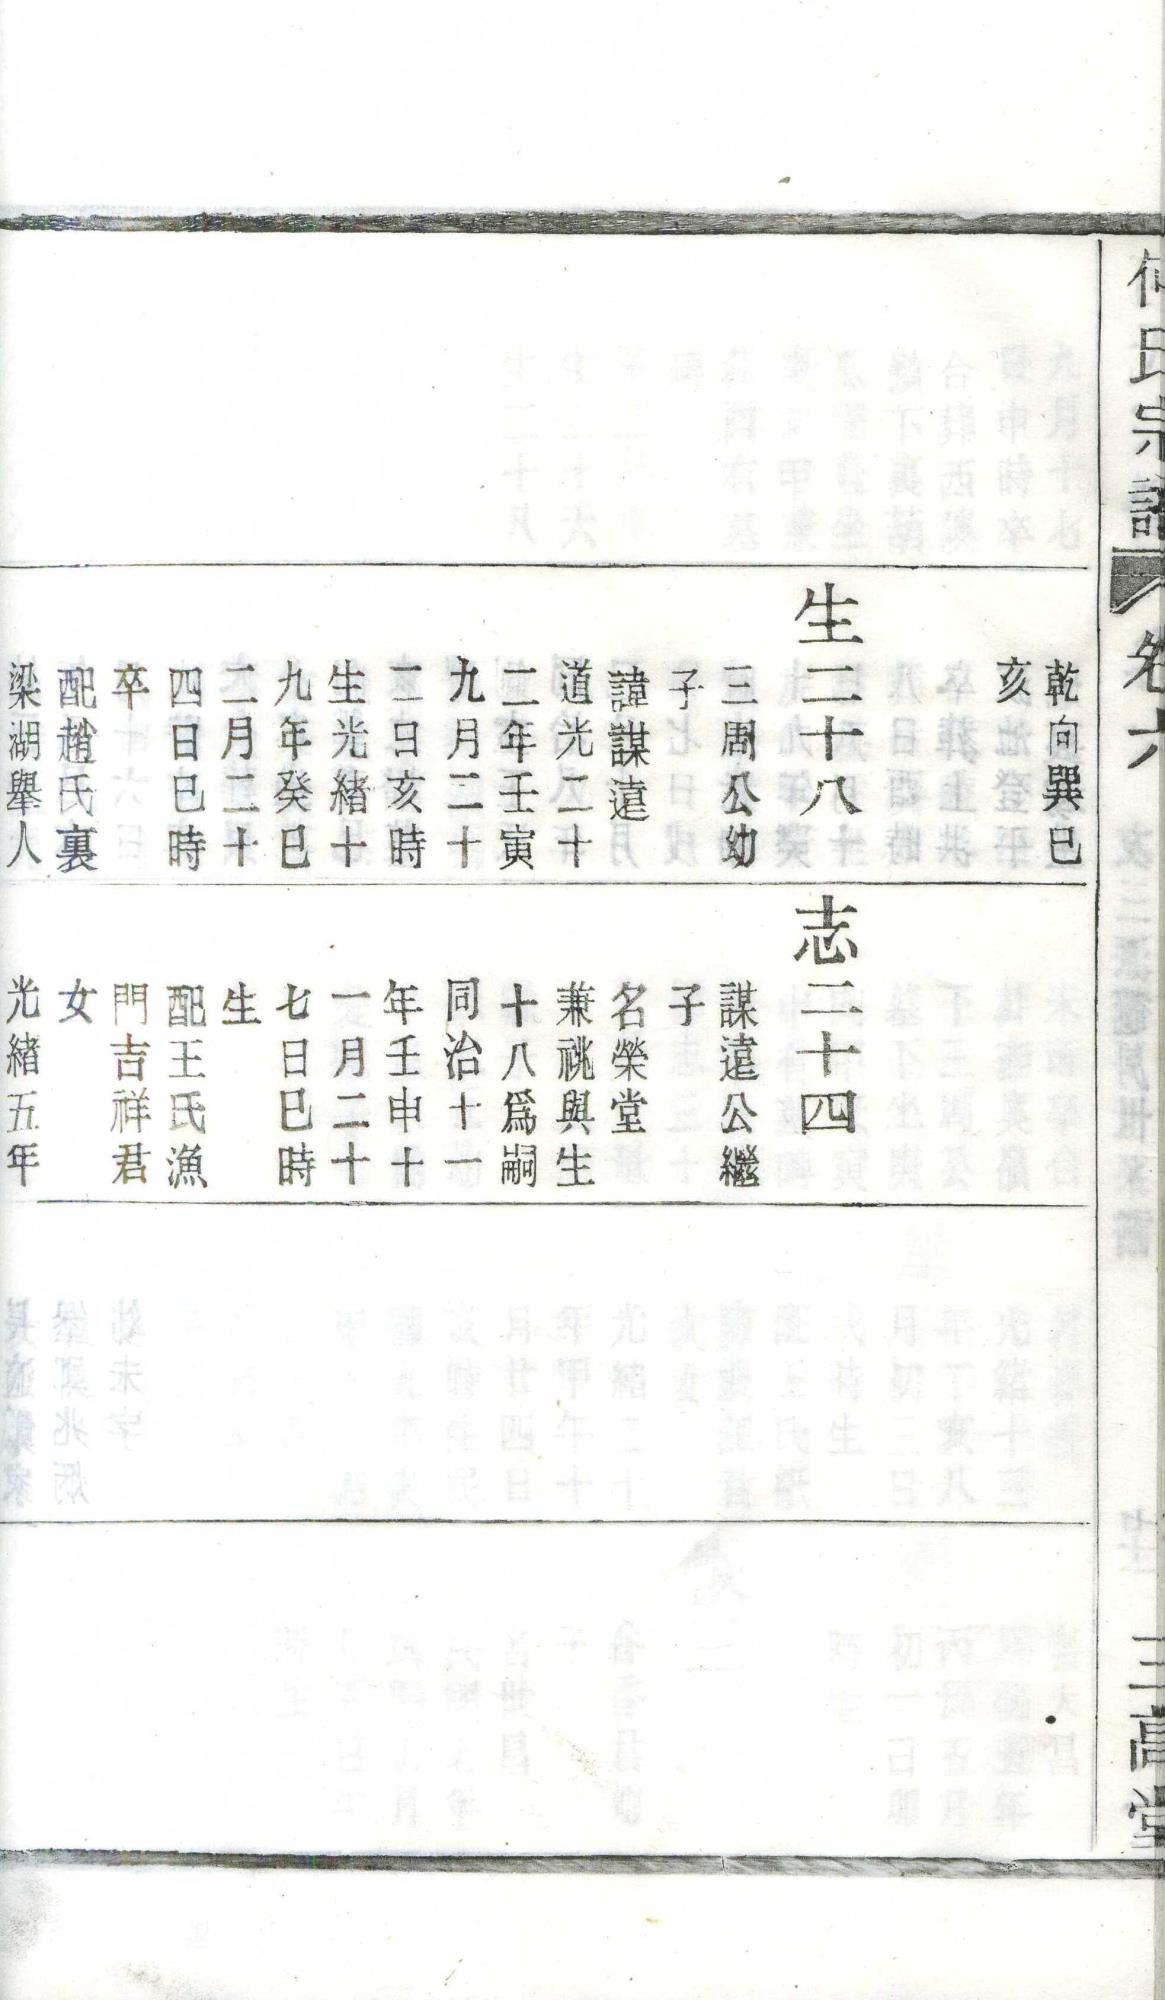 何氏宗譜
卷六
三高堂
乾向巽巳
亥
生二十八
三周公幼
子
諱謀遠
道光二十
二年壬寅
九月二十
二日亥時
生光緒十
九年癸巳
二月二十
四日巳時
卒
配趙氏裏
梁湖舉人
志二十四
謀遠公繼
子
名榮堂
兼祧與生
十八爲嗣
同治十一
年壬申十
一月二十
七日巳時
生
配王氏漁
門吉祥君
女
光緒五年